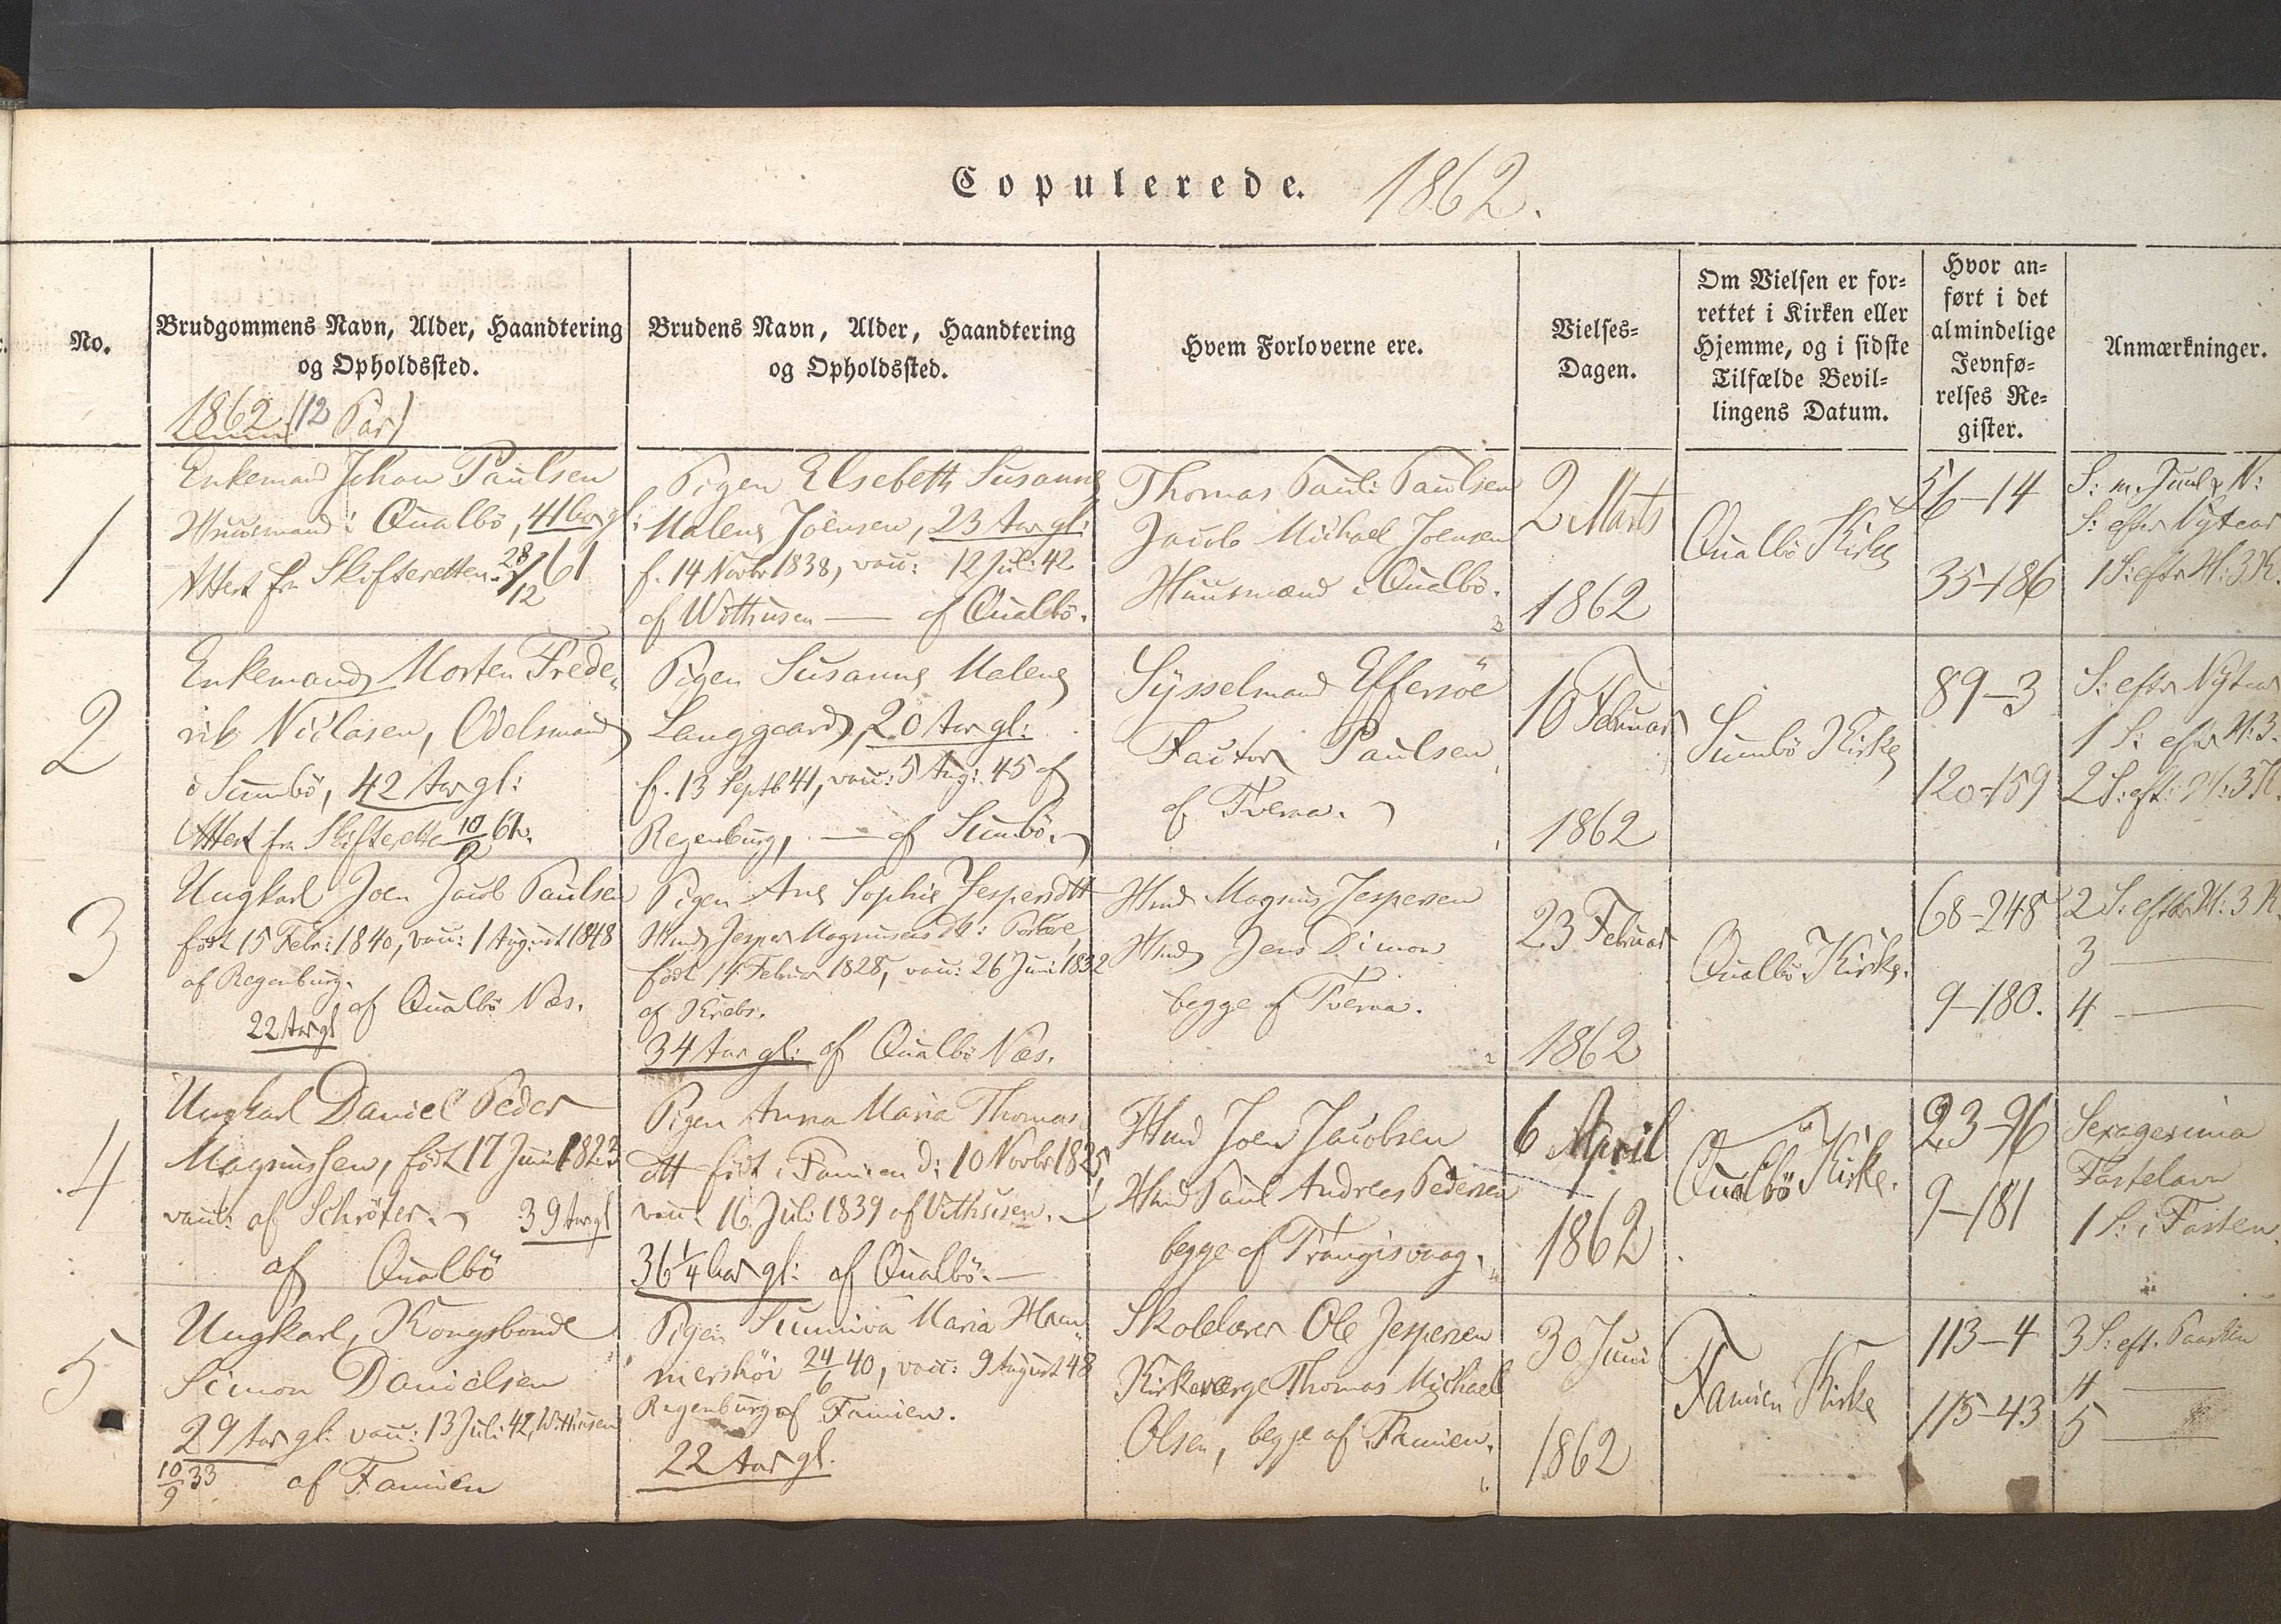 Copulerede. 1862.
No.
Brudgommens Navn, Alder, Haandtering
og Opholdssted.
1862 (12 Par)
Brudens Navn, Alder, Haandtering
og Opholdssted.
Hvem Forloverne ere.
Vielses-
Dagen.
Om Vielsen er for-
rettet i Kirken eller
Hjemme, og i sidste
Tilfælde Bevil-
lingens Datum.
Hvor an-
ført i det
almindelige
Jevnfø-
relses Re-
gister.
Anmærkninger.
1
Enkemand Johan Paulsen
Huusmand i Qualbö, 41
Attest fra Skifteretten 28/12 61
Pigen Elsebeth Susanne
Malene Joensen, 23 Aar gl:
f. 14 Novbr 1838, vacc: 12 Juli 42
af Withusen — af Qualbö.
Thomas Pauli Paulsen
Jacob Michael Joensen
Huusmænd i Qualbö.
2 Marts
1862
Qualbö Kirke
56-14
35-186
S. m. Juul & N:
S: efter Nytaar
1 S: eftr H: 3 K.
2
Enkemand Morten Frede-
rik Niclasen, Odelsmand
i Sumbö, 42 Aar gl:
Attest fra Skifteretten
Pigen Susanne Malene
Langgaard, 20 Aar gl:
f. 13 Septb 41, vacc: 5 Aug: 45 af
Regenburg, — af Sumbö.
Sysselmand Effersöe
Factor Paulsen,
af Tveraa.
16 Februar
1862
Sumbö Kirke
89-3
120-159
S: eftr Nytaar
1 S: eftr H: 3.
2 S: eft: H: 3 K.
3
Ungkarl Joen Jacob Paulsen
födt 15 Febr: 1840, vacc: 1 August 1848
af Regenburg.
af Qualbö Næs.
22 Aar gl
Pigen Ane Sophie Jespersdtt
Huusmd Jesper Magnusens Dtr: Porkere,
födt 14 Februar 1828, vacc: 26 Juni 1832
af Krebs.
34 Aar gl: af Qualbö Næs.
Hmd Magnus Jespersen
Hmd Jens Dimon
begge af Tveraa.
23 Februar
1862
Qualbö Kirke.
68-248
9-180.
2 S: efter H: 3 K.
3 —
4 —
4
Ungkarl Daniel Peder
Magnussen, födt 17 Juni 1823
vacc: af Schröter. 39 Aar gl
af Qualbö
Pigen Anna Maria Thomas
dtt födt i Famien d: 10 Novbr 1825,
vacc: 16 Juli 1839 af Withusen.
36 1/4 Aar gl: af Qualbö. —
Hmd Joen Jacobsen
Hmd Paul Andreas Pedersen
begge af Trangisvaag.
6 April
1862
Qualbö Kirke.
23-96
9-181
Sexagesima
Fastelavn
1 S. i Fasten.
5
Ungkarl, Kongsbonde
Simon Danielsen
29 Aar gl: vacc: 13 Juli 42, Withusen
10/9 33 af Famien
Pigen Sunniva Maria Ham-
mershöi 24/6 40, vacc: 9 August 48
Regenburg af Famien.
22 Aar gl.
Skolelærer Ole Jespersen
Kirkeværge Thomas Michael
Olsen, begge af Famien.
30 Juni
1862
Famien Kirke
113-4
115-43
3 S: eft. Paasken
4 —
5 —